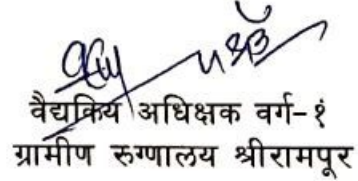 वैद्यकिय अधिक्षक वर्ग-१
ग्रामीण रुग्णालय श्रीरामपूर